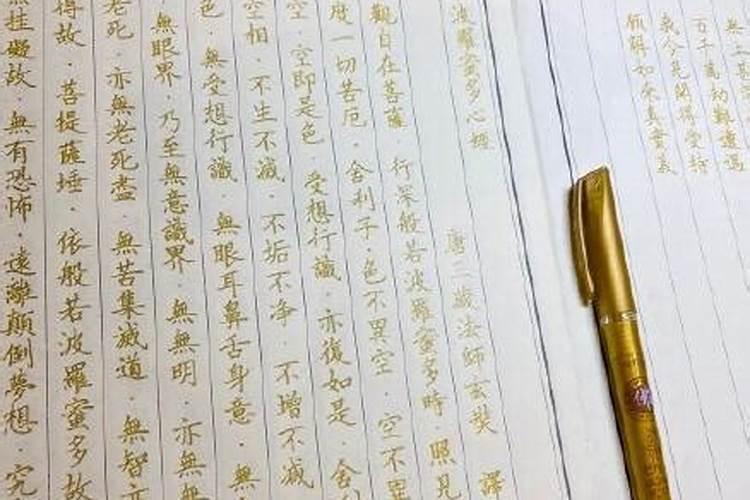 無上甚
百千萬劫難遭遇
我今見聞得受持
願解如來真實義
波羅蜜多心經 唐三藏法師玄奘 譯
觀自在菩薩·行深般若波羅蜜多時·照見
度一切苦厄·舍利子·色不異空·空不異
空·空即是色·受想行識·亦復如是·舍利
空相·不生不滅·不垢不净·不增不減
色·無受想行識·無眼耳鼻舌身意·無
無眼界·乃至無意識界·無無明·亦無無
老死·亦無老死盡·無苦集滅道·無智亦
得故·菩提薩埵·依般若波羅蜜多故
無挂礙故·無有恐怖·遠離顛倒夢想·究